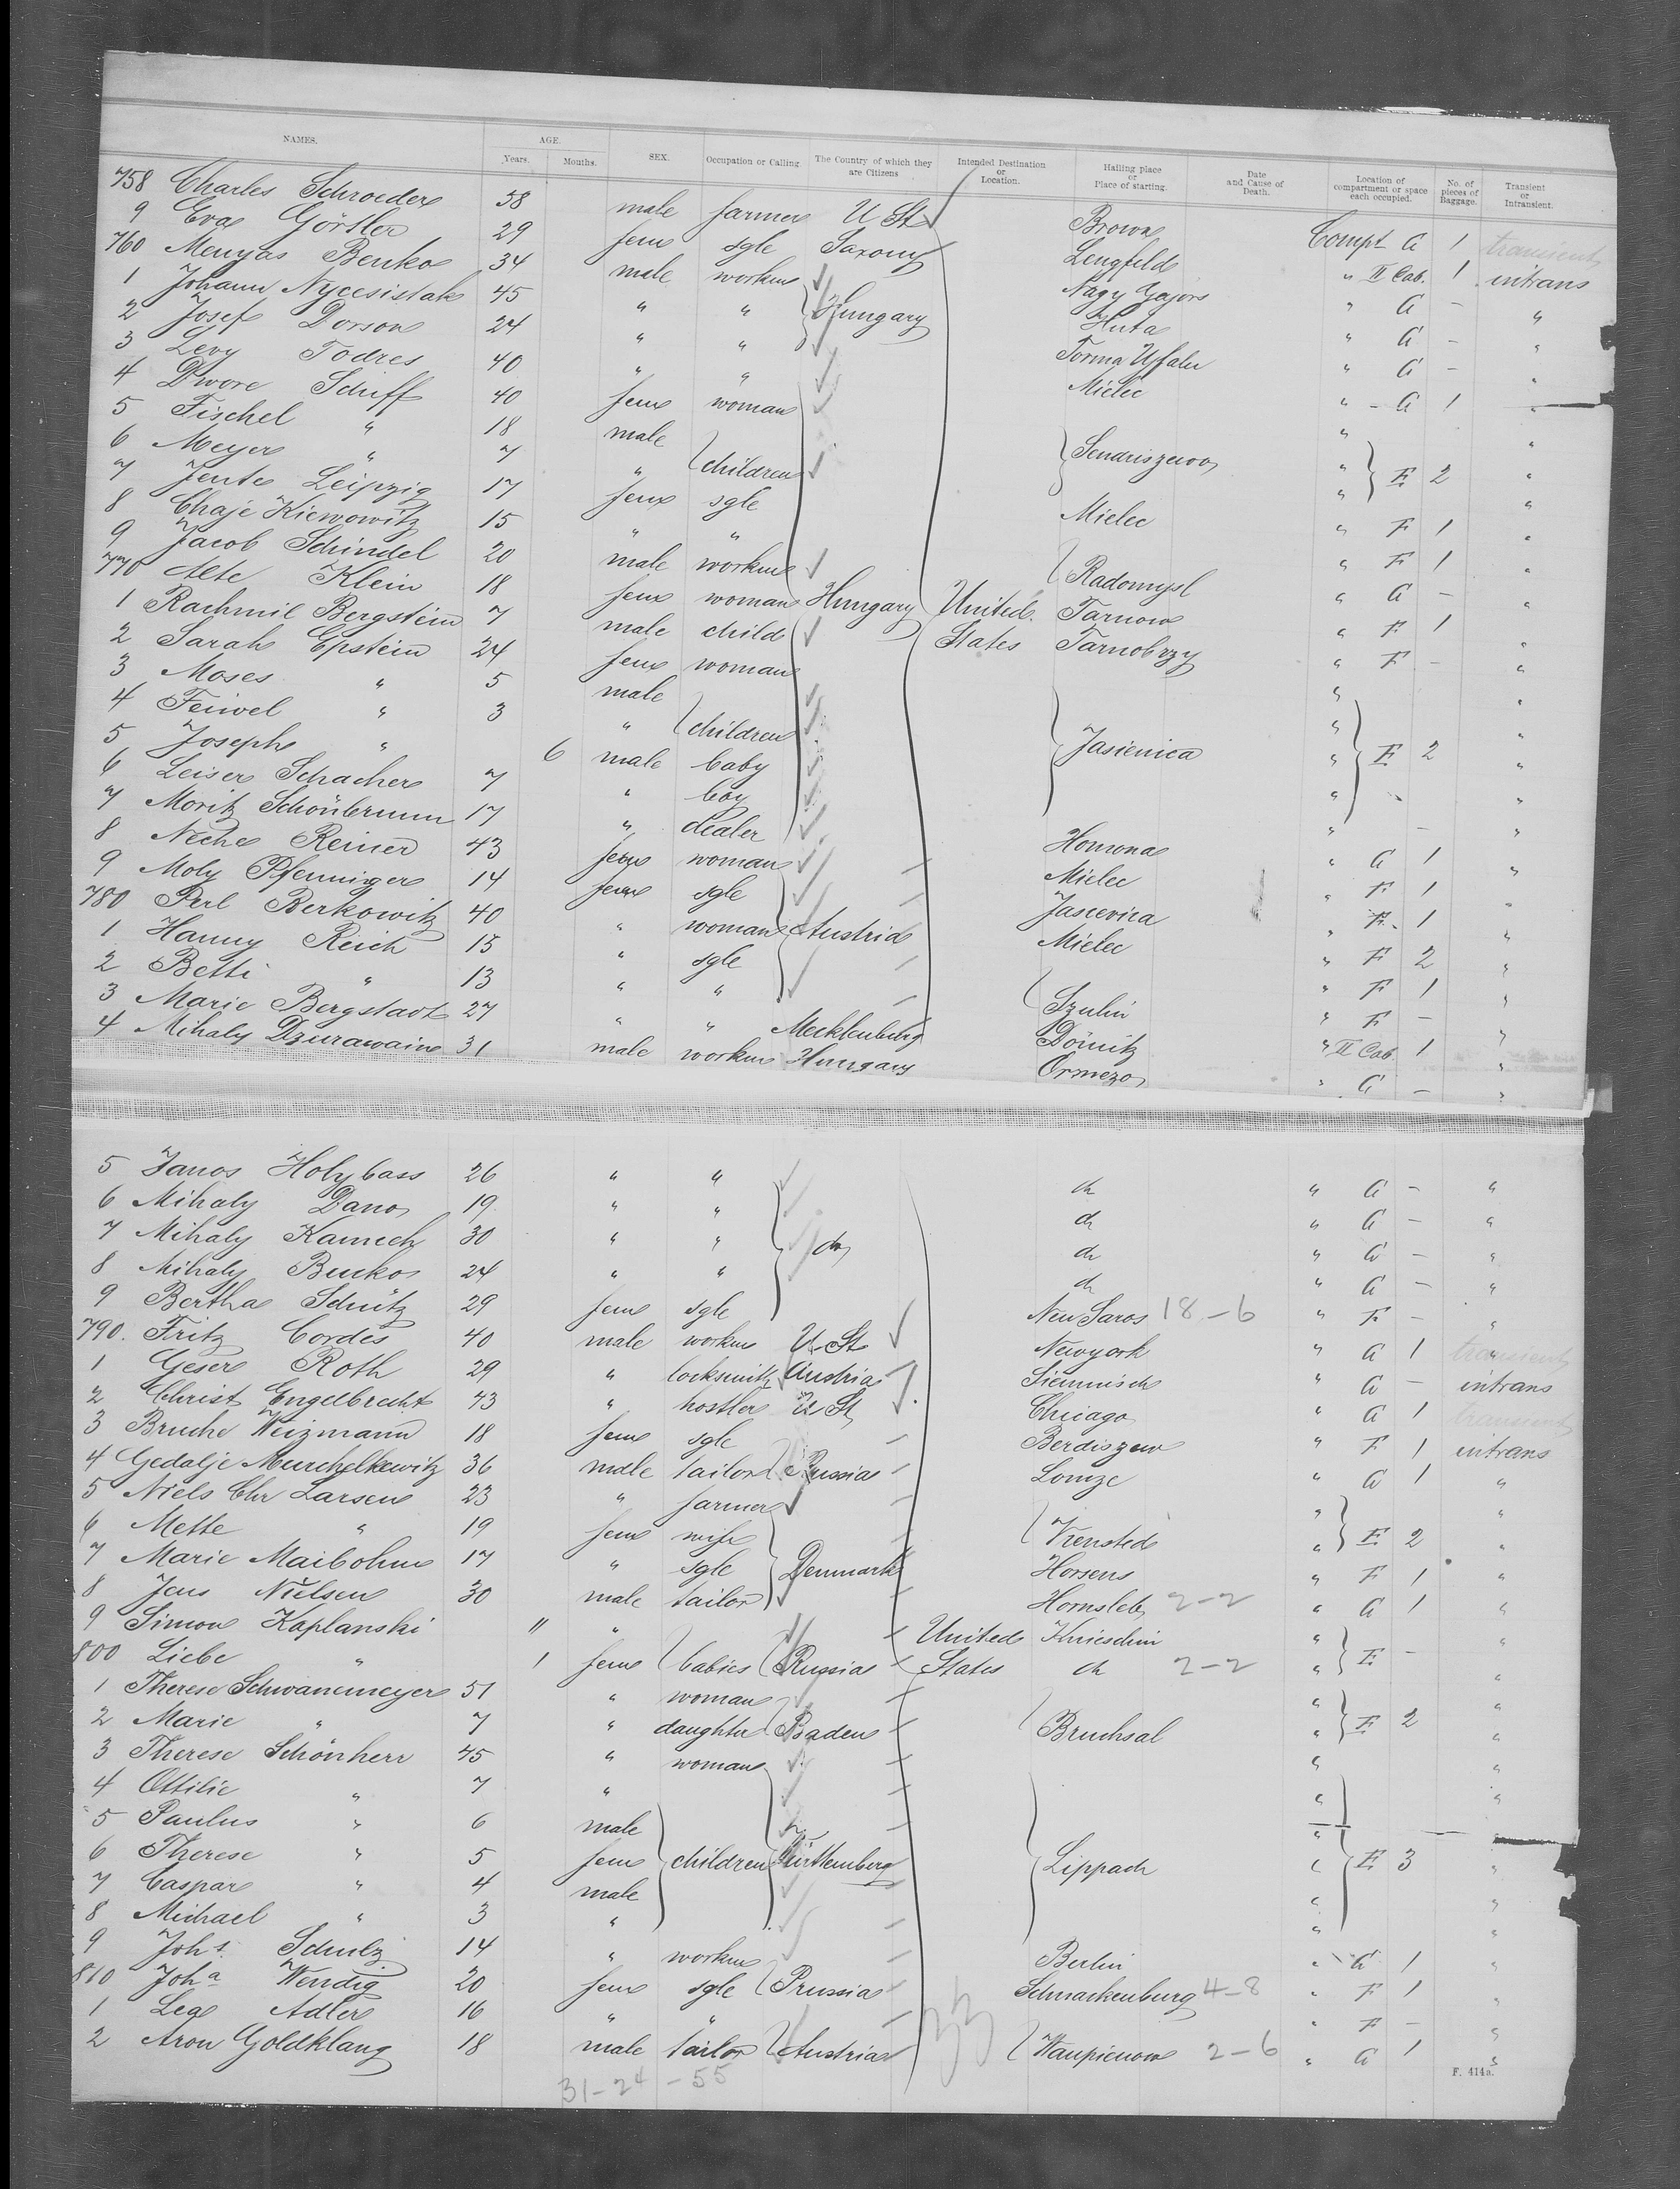 NAMES. AGE. Years. Months. SEX. Occupation or Calling The Country of which they are Citizens Intended Destination or Location. Hailing place or Place of starting. Date and Cause of Death. Location of compartment or space each occupied. No. of pieces of Baggage. Transient or Intransient.
758 Charles Schroeder 58 male farmer U St Brown Compt G 1 transient
9 Eva Görtler 29 fem sgle Saxony Lengfeld " II Cab. 1 intrans
760 Menyas Benko 34 male workm Nagy Gajors " G - "
1 Johann Nycesistak 45 " " Hungary Huta " G - "
2 Josef Dorson 24 " " Torna Ujfalu " G - "
3 Levy Todres 40 " " Mielec " G 1 "
4 Dwore Schiff 40 fem woman "
5 Fischel " 18 male children " E 2 "
6 Meyer " 7 " " "
7 Jente Leipzig 17 fem sgle Mielec " F 1 "
8 Chaje Kiewowitz 15 " " " F 1 "
9 Jacob Schindel 20 male workm Radomysl " G - "
770 Alte Klein 18 fem woman Hungary United Tarnow " F 1 "
1 Rachmil Bergstein 7 male child States Tarnobrzy " F - "
2 Sarah Epstein 24 fem woman " "
3 Moses " 5 male " "
4 Feiwel " 3 " children Jasienica " E 2 "
5 Joseph " 6 male baby " "
6 Leiser Schacher 7 " boy " "
7 Moritz Schönbrunn 17 " dealer Homona " G 1 "
8 Neche Reiner 43 fem woman Mielec " F 1 "
9 Moly Pfenniger 14 fem sgle " F. 1 "
780 Perl Berkowitz 40 " woman Austria Mielec " F 2 "
1 Hanny Reich 15 " sgle " F 1 "
2 Betti " 13 " " Szulin " F - "
3 Marie Bergstadt 27 " " Mecklenburg Dömitz " II Cab. 1 "
4 Mihaly Dzurawain 31 male workm Hungary Ormezo " G - "
5 Janos Holybass 26 " " do " G - "
6 Mihaly Dano 19 " " do " G - "
7 Mihaly Kamech 30 " " do do " G - "
8 Mihaly Bucko 24 " " do " G - "
9 Bertha Schütz 29 fem sgle New Saros 18-6 " F - "
790. Fritz Cordes 40 male workm U St Newyork " G 1 transient
1 Geser Roth 29 " locksmith Austria " G - intrans
2 Christ Engelbrecht 43 " hostler U St Chicago " G 1 transient
3 Bruche Weizmann 18 fem sgle Berdiszew " F 1 intrans
4 Gedalje Murchelkewitz 36 male tailor Russia Lomze " G 1 "
5 Niels Chr Larsen 23 " farmer " "
6 Mette " 19 fem wife Vrensted " E 2 "
7 Marie Maibohm 17 " sgle Denmark Horsens " F 1 "
8 Jens Nielsen 30 male tailor Hornsleb 2-2 " G 1 "
9 Simon Kaplanski 11 " United Knieschin " "
800 Liebe " 1 fem babies Russia States do 2-2 " E - "
1 Therese Schwanemeyer 51 " woman " "
2 Marie " 7 " daughter Baden Bruchsal " E 2 "
3 Therese Schönherr 45 " woman " "
4 Ottilie " 7 " " "
5 Paulus " 6 male " "
6 Therese " 5 fem children Württemberg Lippach " E 3 "
7 Caspar " 4 male " "
8 Michael " 3 " " "
9 Johs. Schulz 14 " workm Berlin " G 1 "
810 Joha Wendig 20 fem sgle Prussia Schnackenburg 4-8 " F 1 "
1 Lea Adler 16 " " " F - "
2 Aron Goldklang 18 male tailor Austria 2-6 " G 1 "
31-24-55
F. 414a.